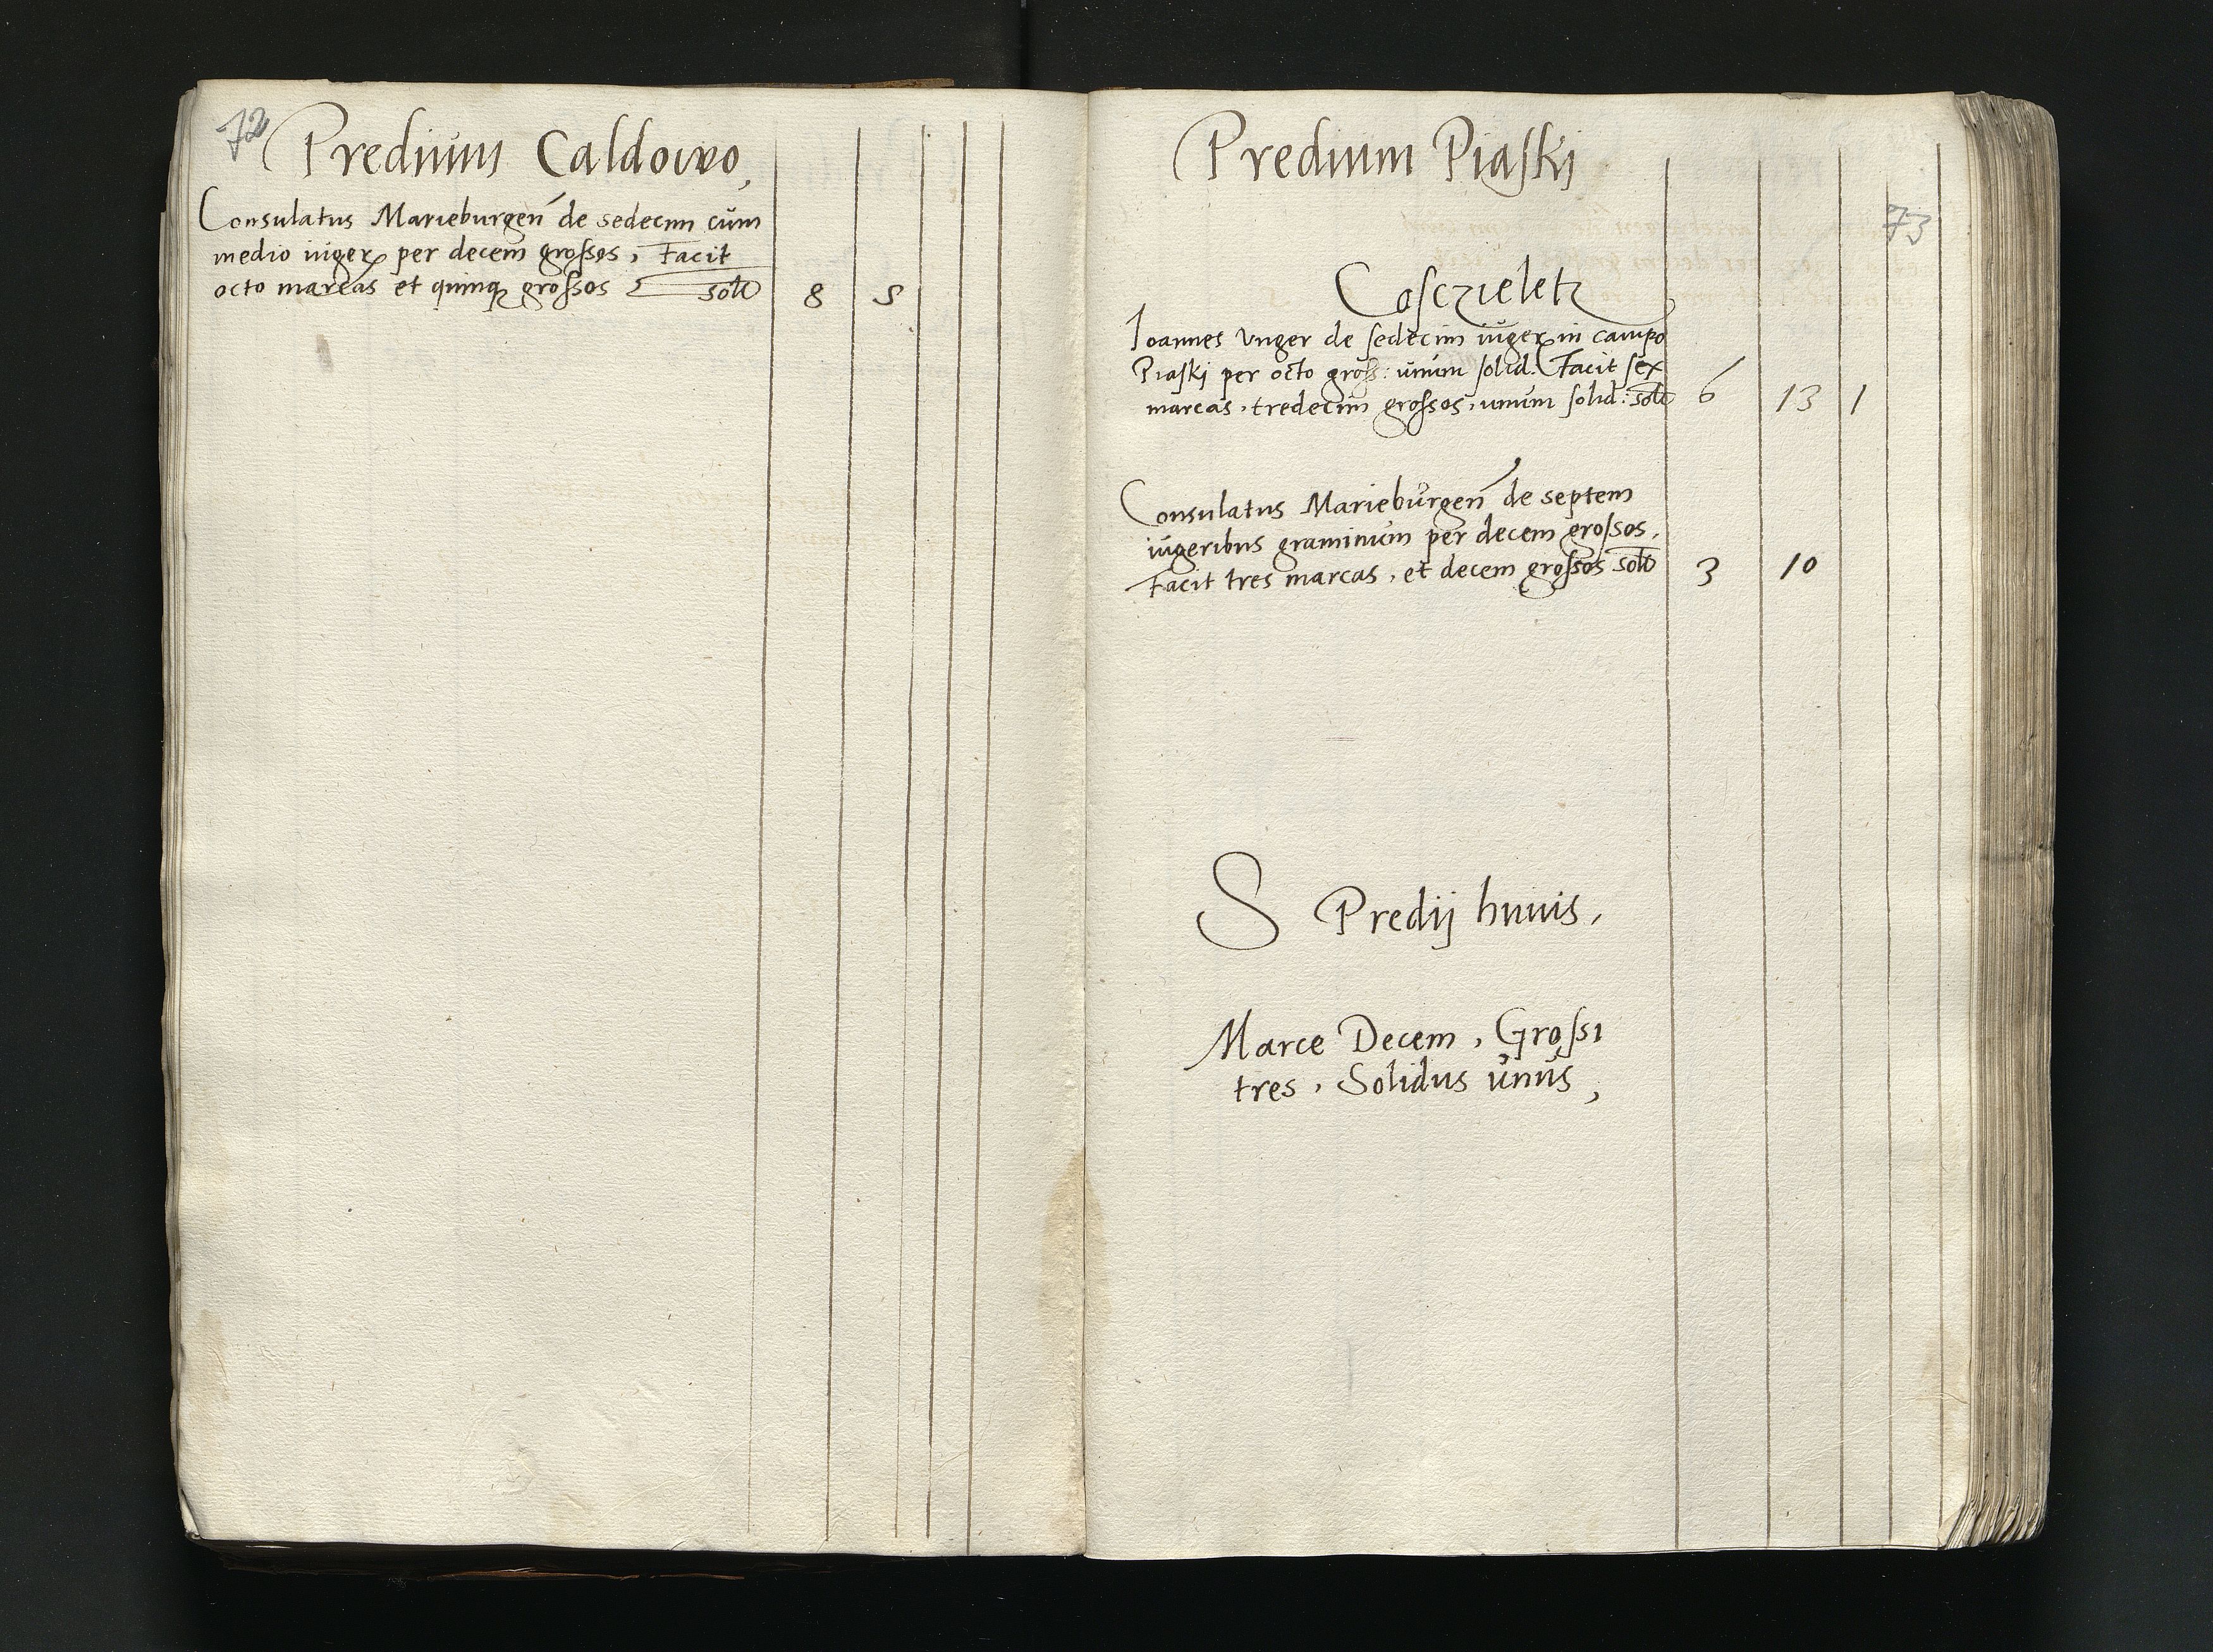 72
Predium Caldowo,
Consulatus Marieburgen̄ de sedecim cum
medio iuger, per decem grossos, Facit
octo marcas et quinq3 grossos solt 8 5
Predium Piaskj
73
Coscrieletz
Ioannes Vnger de sedecim iuger in campo
Piaskj per octo gross: unum solid. Facit sex
marcas, tredecim grossos, unum solid: solt 6 13 1
Consulatus Marieburgen̄ de septem
iugeribus graminum per decem grossos,
Facit tres marcas, et decem grossos solt 3 10
S Predij huius,
Marce Decem, Grossi
tres, Solidus unus,